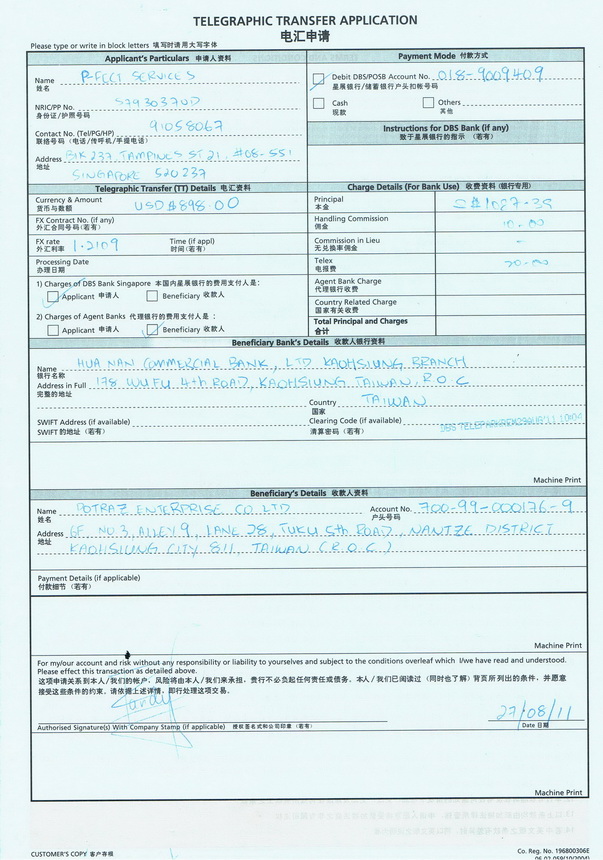 TELEGRAPHIC TRANSFER APPLICATION
电汇申请
Please type or write in block letters 填写时请用大写字体
Applicant's Particulars 申请人资料
Name P-FECT SERVICES
姓名
NRIC/PP No.
身份证/护照号码
Contact No. (Tel/PG/HP) 91058067
联络号码 (电话/传呼机/手提电话)
Address BLK 237 TAMPINES ST 21, #08-551
地址
SINGAPORE 520237
Payment Mode 付款方式
Debit DBS/POSB Account No. 018-9009409
星展银行/储蓄银行户头扣帐号码
Cash Others
现款 其他
Instructions for DBS Bank (if any)
致于星展银行的指示 (若有)
Telegraphic Transfer (TT) Details 电汇资料
Currency & Amount USD$898.00
货币与数额
FX Contract No. (if any)
外汇合同号码(若有)
FX rate 1.2109 Time (if appl)
外汇利率 时间(若有)
Processing Date
办理日期
1) Charges of DBS Bank Singapore 本国内星展银行的费用支付人是:
Applicant 申请人 Beneficiary 收款人
2) Charges of Agent Banks 代理银行的费用支付人是:
Applicant 申请人 Beneficiary 收款人
Charge Details (For Bank Use) 收费资料 (银行专用)
Principal S$1087-39
本金
Handling Commission 10.00
佣金
Commission in Lieu -
无兑换率佣金
Telex 20.00
电报费
Agent Bank Charge
代理银行收费
Country Related Charge
国家有关收费
Total Principal and Charges
合计
Beneficiary Bank's Details 收款人银行资料
Name HUA NAN COMMERCIAL BANK, LTD KAOHSIUNG BRANCH
银行名称
Address in Full 178 WUFU 4th ROAD, KAOHSIUNG TAIWAN, R.O.C
完整的地址
Country TAIWAN
国家
SWIFT Address (if available) Clearing Code (if available)
SWIFT 的地址 (若有) 清算密码 (若有)
Machine Print
Beneficiary's Details 收款人资料
Name POTRAZ ENTERPRISE CO. LTD Account No. 700-99-000176-9
姓名 户头号码
Address 6F NO.3, ALLEY 9, LANE 28, TUKU 5th ROAD, NANTZE DISTRICT
地址
KAOHSIUNG CITY 811 TAIWAN (R.O.C.)
Payment Details (if applicable)
付款细节 (若有)
Machine Print
For my/our account and risk without any responsibility or liability to yourselves and subject to the conditions overleaf which I/we have read and understood.
Please effect this transaction as detailed above.
这项申请关系到本人/我们的帐户，风险将由本人/我们来承担，贵行不必负起任何责任或债务。本人/我们已阅读过 (同时也了解) 背页所列出的条件，并愿意
接受这些条件的约束，请依据上述详情，即行处理这项交易。
27/08/11
Authorised Signature(s) With Company Stamp (if applicable) 授权签名式和公司印章 (若有) Date 日期
Machine Print
CUSTOMER'S COPY 客户存根 Co. Reg. No. 196800306E
06.02.059(10/2004)